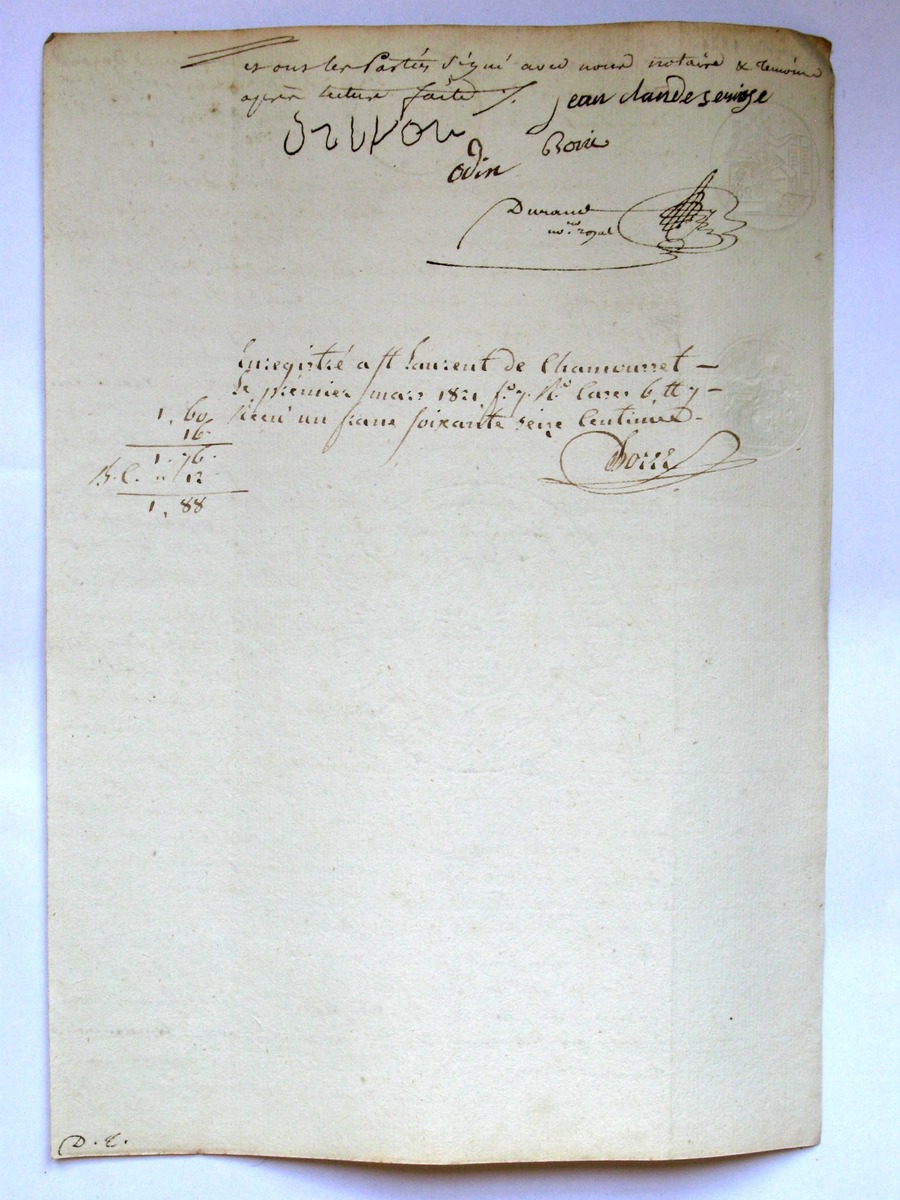 et ont les Parties signé avec nous notaire & temoins
après lecture faite ./.
jean claude seringe
Boiri
odin
Durand
nre. royal
Enregistré a St Laurent de Chamousset —
Le premier mars 1821 fo. 7 Ro. Cases 6 et 7 —
Reçu un franc soixante seize Centimes -
1, 60
16
1. 76
12
1, 88
D. C.